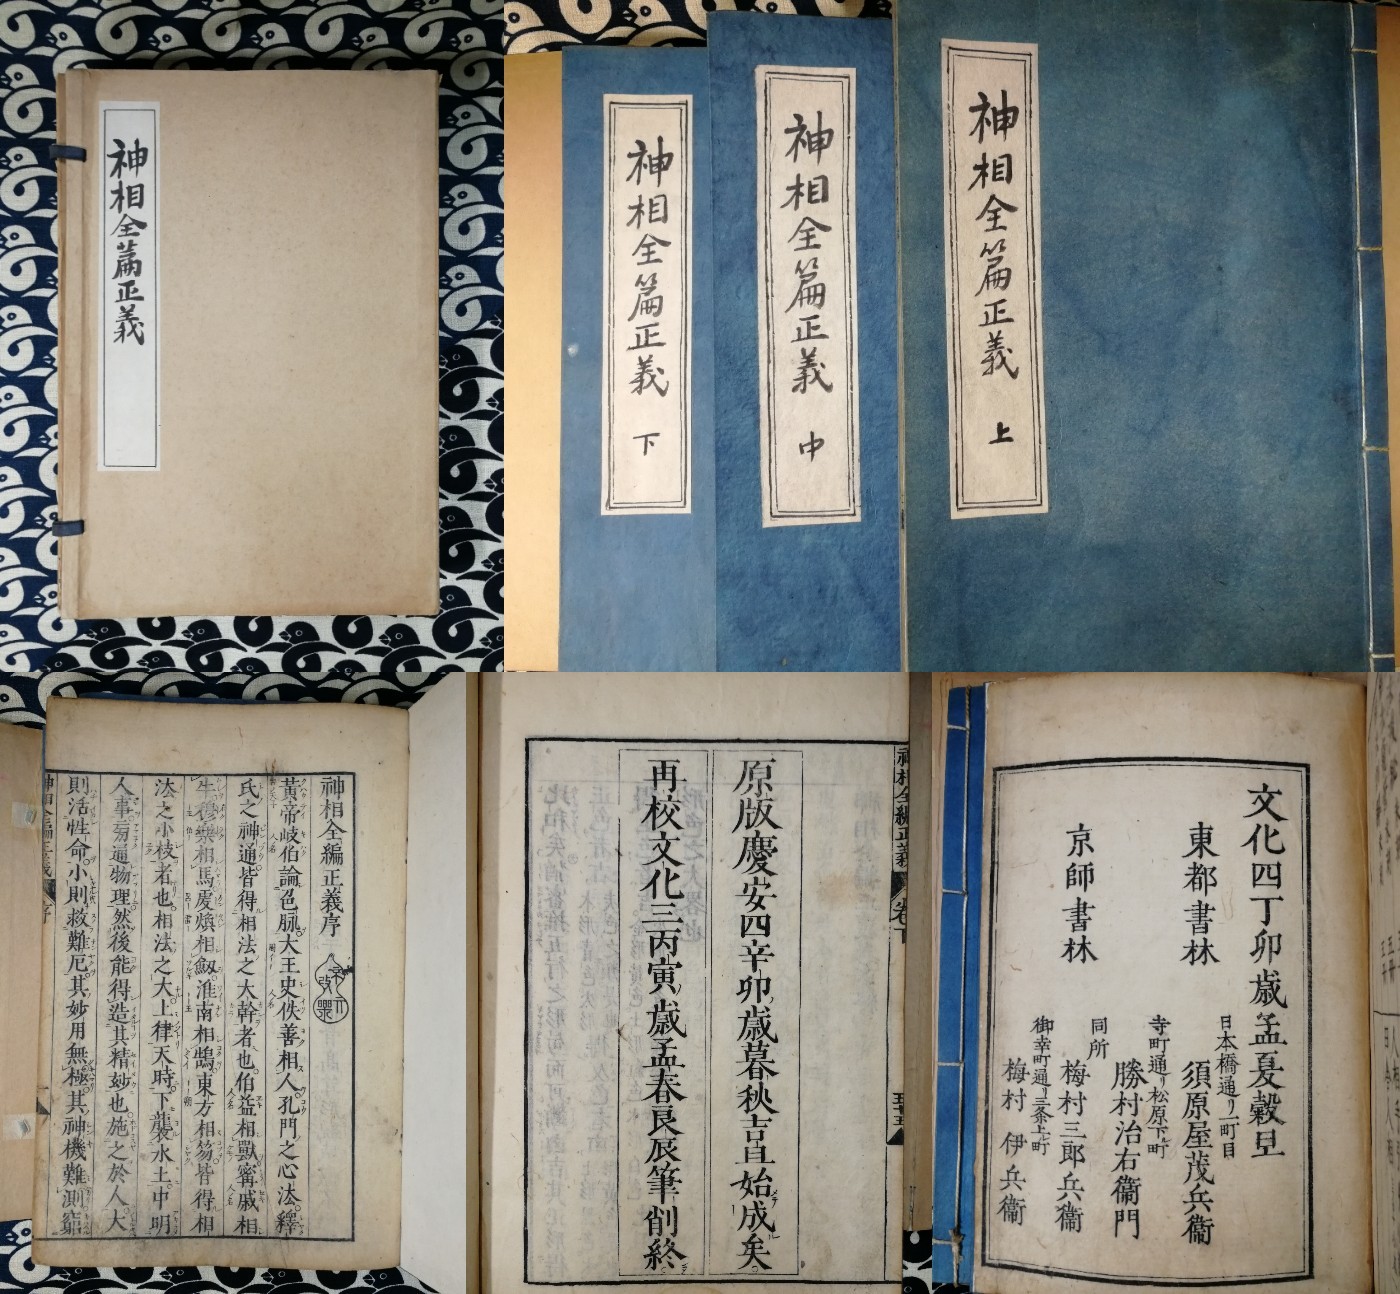 神相全篇正義
神相全篇正義 上
神相全篇正義 中
神相全篇正義 下
神相全編正義序
黃帝岐伯論色脉大王史佚善相人孔門之心法釋
氏之神通皆得相法之大幹者也伯益相獸甯戚相
牛穆樂相馬虔熕相劔淮南相鵠東方相笏皆得相
法之小枝者也相法之大上律天時下襲水土中明
人事旁通物理然後能得造其精妙也施之於人大
則活性命小則救難厄其妙用無極其神機難測窮
神相全編正義 序
神相全編正義 卷下 五十五
原版慶安四辛卯歳暮秋吉旦始成矣
再校文化三丙寅歳孟春良辰筆削終
文化四丁卯歳孟夏穀旦
東都書林 日本橋通リ一町目 須原屋茂兵衞
京師書林 寺町通リ松原下ル町 勝村治右衞門
同所 梅村三郎兵衞
御幸町通リ三条上ル町 梅村伊兵衞